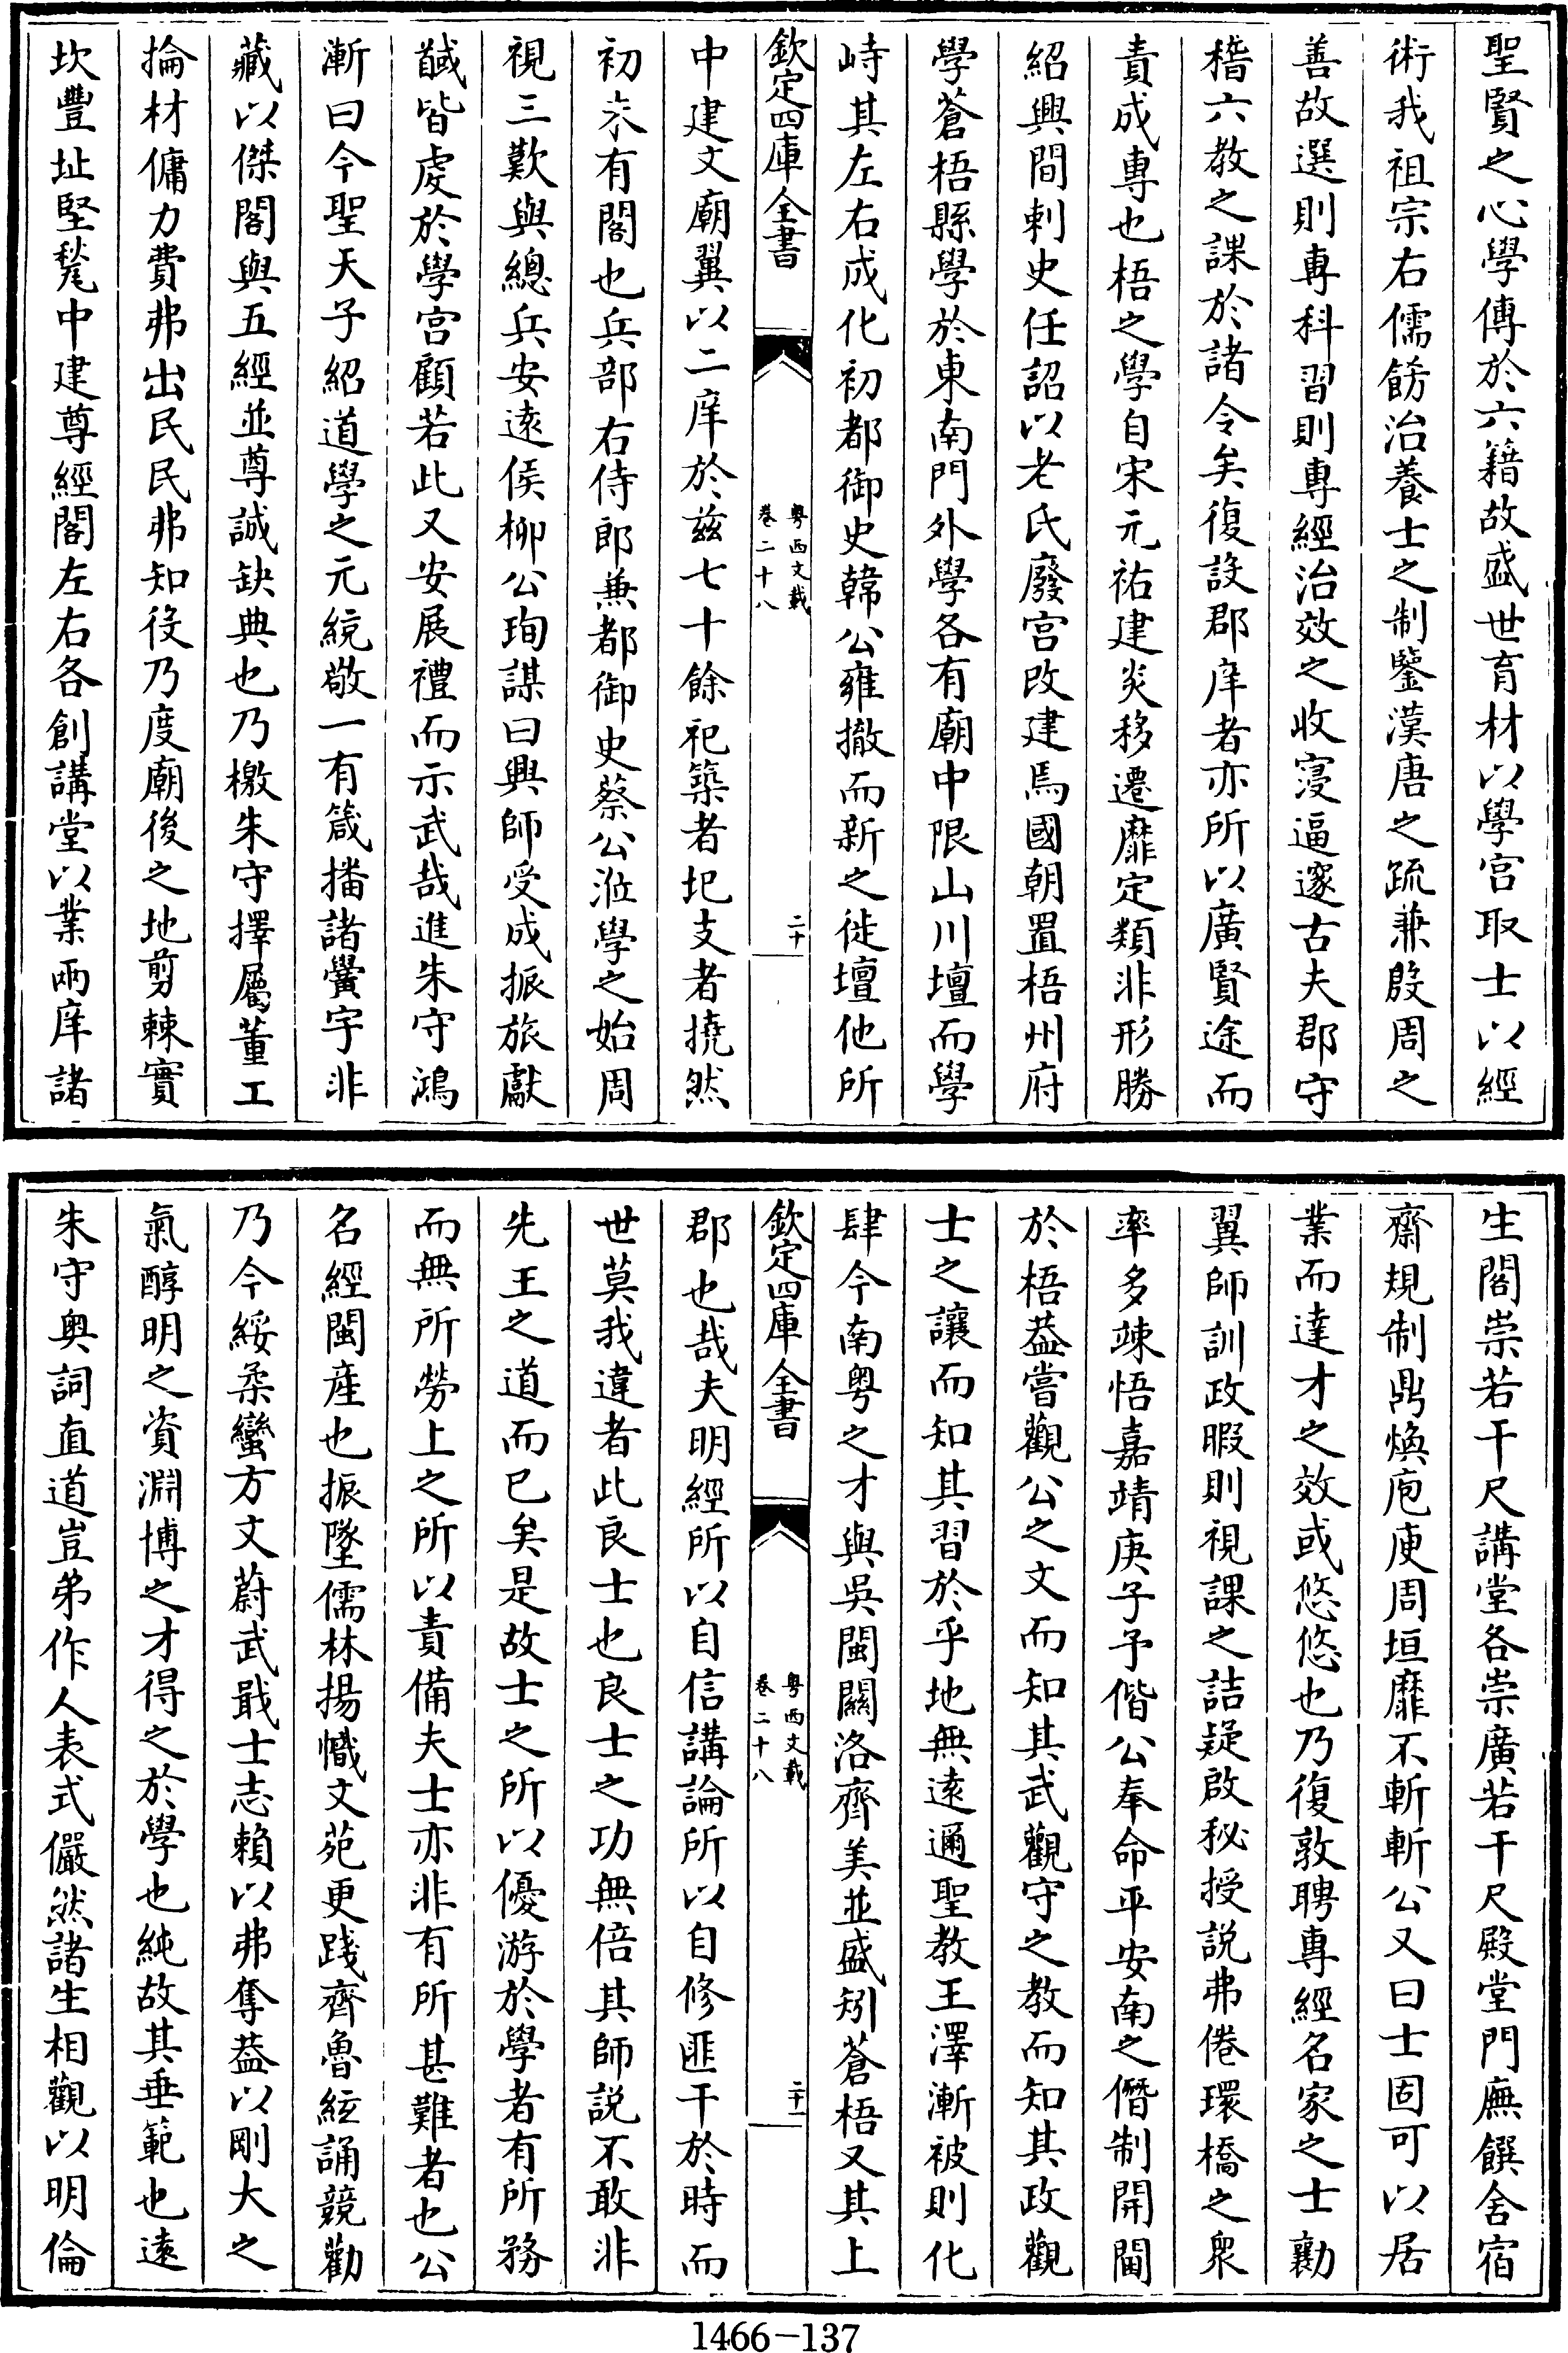 聖賢之心學傳於六籍故盛世育材以學宫取士以經
術我祖宗右儒飭治養士之制鑒漢唐之疏兼殷周之
善故選則專科習則專經治效之收寖逼邃古夫郡守
稽六教之課於諸令矣復設郡庠者亦所以廣賢途而
責成專也梧之學自宋元祐建炎移遷靡定類非形勝
紹興間刺史任詔以老氏廢宫改建焉國朝置梧州府
學蒼梧縣學於東南門外學各有廟中限山川壇而學
峙其左右成化初都御史韓公雍撤而新之徙壇他所
欽定四庫全書
粤西文載
卷二十八
二十
中建文廟翼以二庠於兹七十餘祀築者圮支者撓然
初未有閣也兵部右侍郎兼都御史蔡公涖學之始周
視三歎與總兵安逺侯柳公珣謀曰興師受成振旅獻
馘皆䖍於學宫顧若此又安展禮而示武哉進朱守鴻
漸曰今聖天子紹道學之元統敬一有箴播諸黌宇非
藏以傑閣與五經並尊誠缺典也乃檄朱守擇屬董工
掄材傭力費弗出民民弗知役乃度廟後之地剪棘實
坎豐址堅甃中建尊經閣左右各創講堂以業兩庠諸
生閣崇若干尺講堂各崇廣若干尺殿堂門廡饌舍宿
齋規制鼎煥庖庾周垣靡不斬斬公又曰士固可以居
業而達才之效或悠悠也乃復敦聘專經名家之士勷
翼師訓政暇則視課之詰疑啟秘授説弗倦環橋之衆
率多竦悟嘉靖庚子予偕公奉命平安南之僭制開閫
於梧葢嘗觀公之文而知其武觀守之教而知其政觀
士之讓而知其習於乎地無逺邇聖教王澤漸被則化
肆今南粤之才與吳閩關洛齊美並盛矧蒼梧又其上
欽定四庫全書
粤西文載
卷二十八
二十一
郡也哉夫明經所以自信講論所以自修匪干於時而
世莫我違者此良士也良士之功無倍其師説不敢非
先王之道而已矣是故士之所以優游於學者有所務
而無所勞上之所以責備夫士亦非有所甚難者也公
名經閩産也振墜儒林揚幟文苑更踐齊魯絃誦競勸
乃今綏柔蠻方文蔚武戢士志賴以弗奪葢以剛大之
氣醇明之資淵博之才得之於學也純故其垂範也逺
朱守奥詞直道豈弟作人表式儼然諸生相觀以明倫
1466-137